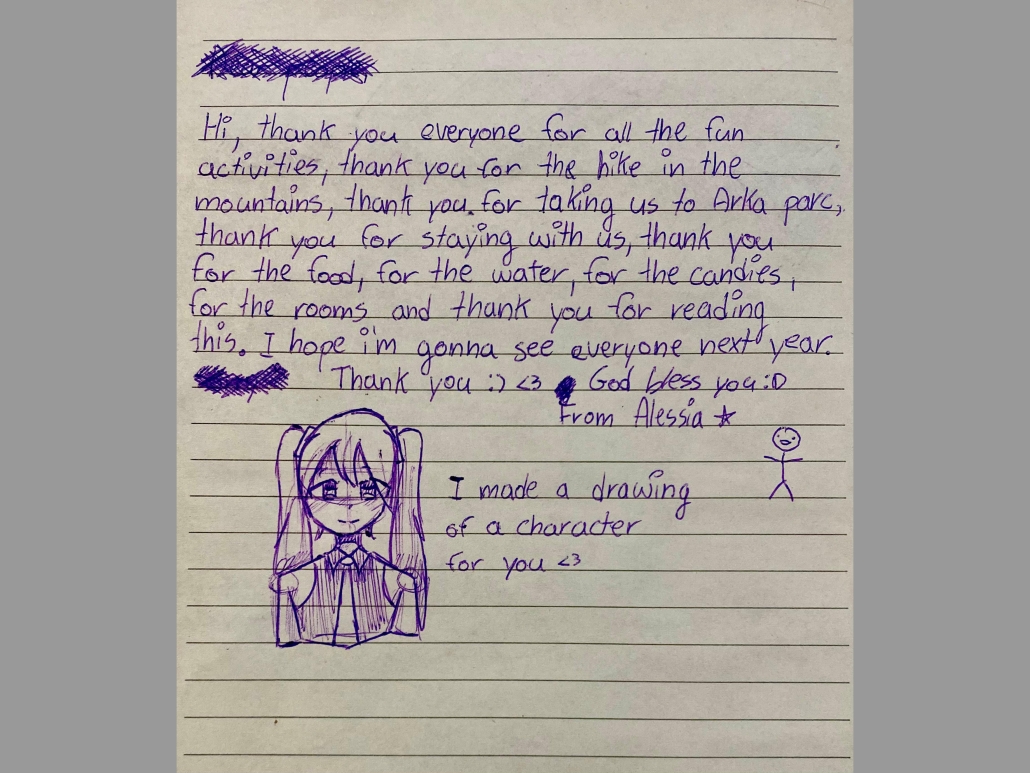 Hi, thank you everyone for all the fun
activities, thank you for the hike in the
mountains, thank you for taking us to Arka parc,
thank you for staying with us, thank you
for the food, for the water, for the candies,
for the rooms and thank you for reading
this. I hope i'm gonna see everyone next year.
Thank you :) <3 God bless you :D
From Alessia ☆
I made a drawing
of a character
for you <3